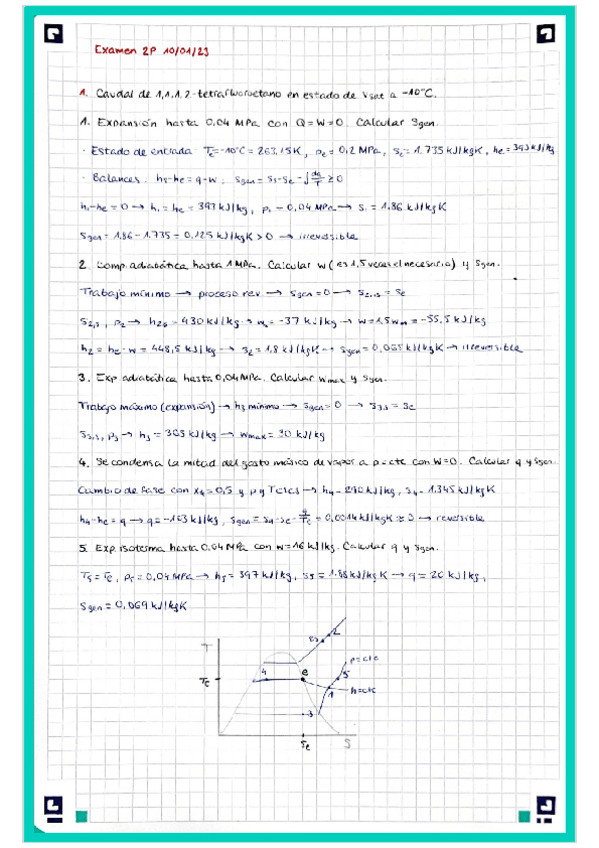 Examen 2P 10/01/23
1. Caudal de 1,1,1,2-tetrafluoroetano en estado de vsat a -10°C.
1. Expansión hasta 0,04 MPa con Q=W=0. Calcular Sgen.
· Estado de entrada: Te=-10°C = 263,15K, pe=0,2 MPa, se=1,735 kJ/kgK, he=393 kJ/kg
· Balances: hs-he = q-w, sgen = ss-se-∫dq/T ≥0
h1-he=0 → h1=he=393 kJ/kg, p1=0,04 MPa → s1=1,86 kJ/kgK
Sgen = 1,86-1,735 = 0,125 kJ/kgK >0 → irreversible
2. Comp. adiabática hasta 1 MPa. Calcular w (es 1,5 veces el necesario) y sgen.
Trabajo mínimo → proceso rev → sgen=0 → s2,s = se
s2,s, p2 → h2s = 430 kJ/kg → = -37 kJ/kg → w=1,5 = -55,5 kJ/kg
h2=he-w = 448,5 kJ/kg → s2=1,8 kJ/kgK → sgen=0,065 kJ/kgK → irreversible
3. Exp adiabática hasta 0,04 MPa. Calcular wmax y sgen.
Trabajo máximo (expansión) → h3 mínimo → sgen=0 → s3,s = se
s3,s, p3 → h3 = 363 kJ/kg → wmax = 30 kJ/kg
4. Se condensa la mitad del gasto másico de vapor a p=cte con W=0. Calcular q y sgen.
Cambio de fase con x4=0,5 y p y T ctes → h4=290 kJ/kg, s4=1,345 kJ/kgK
h4-he=q → q=-103 kJ/kg, sgen = s4-se-q/Te = 0,0014 kJ/kgK → reversible
5. Exp. isoterma hasta 0,04 MPa con w=16 kJ/kg. Calcular q y sgen.
T5=Te, p5=0,04 MPa → h5=397 kJ/kg, s5=1,88 kJ/kgK → q=20 kJ/kg,
sgen = 0,069 kJ/kgK
T
2s 2
p=cte
4 e 5
Te
1 h=cte
3
se S